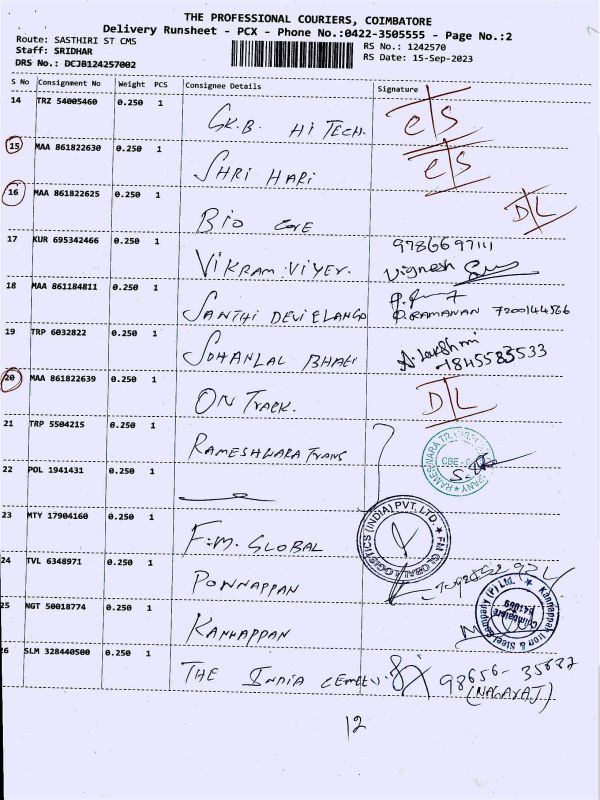 THE PROFESSIONAL COURIERS, COIMBATORE
Delivery Runsheet - PCX - Phone No.:0422-3505555 - Page No.:2
Route: SASTHIRI ST CMS
Staff: SRIDHAR
DRS No.: DCJB124257002
RS No.: 1242570
RS Date: 15-Sep-2023
S No Consignment No Weight PCS Consignee Details Signature
14 TRZ 54005460 0.250 1 G.K.B. Hi TECH. C/S
15 MAA 861822630 0.250 1 SHRI HARI C/S
16 MAA 861822625 0.250 1 BIO D/L
17 KUR 695342466 0.250 1 VIKRAM VIYER. 9786697111 Vignesh
18 MAA 861184811 0.250 1 SANTHI DEVI ELANGO RAMANAN 7200144566
19 TRP 6032822 0.250 1 SOHANLAL BHATI A. lakshmi 9845583533
20 MAA 861822639 0.250 1 ON TRACK. D/L
21 TRP 5504215 0.250 1 RAMESHWARA TRANS
22 POL 1941431 0.250 1
23 MTY 17904160 0.250 1 F.M. GLOBAL FM GLOBAL LOGISTICS (INDIA) PVT. LTD.
24 TVL 6348971 0.250 1 PONNAPPAN
25 NGT 50018774 0.250 1 KANNAPPAN Kannappan Iron & Steel Company (P) Ltd. Coimbatore
26 SLM 328440500 0.250 1 THE INDIA CEMENT 98656-35637
(NAGARAJ)
12